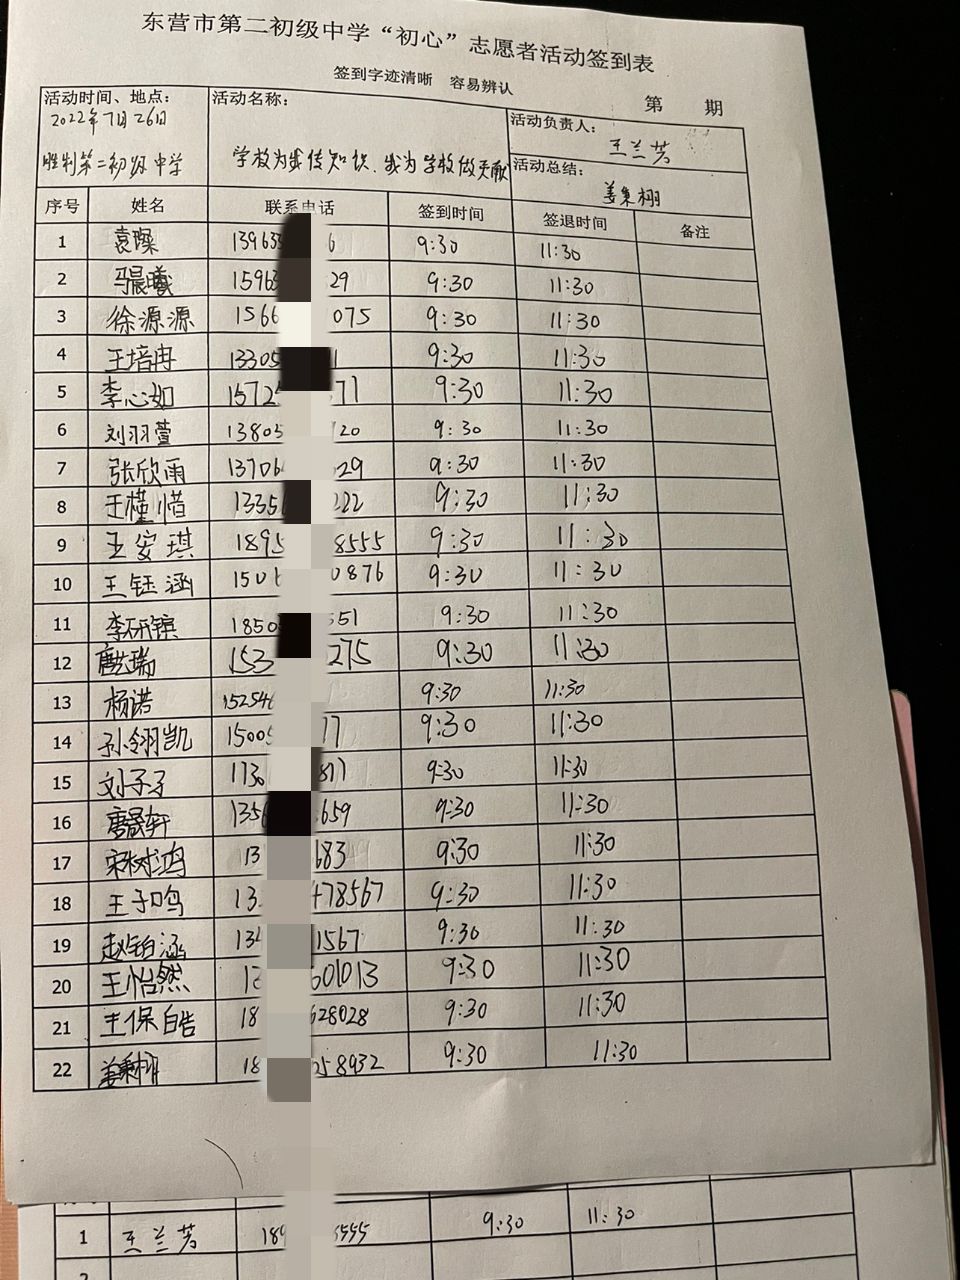 东营市第二初级中学“初心”志愿者活动签到表
签到字迹清晰 容易辨认
第 期
活动时间、地点：
2022年7月26日
胜利第二初级中学
活动名称：
学校为我传知识、我为学校做贡献
活动负责人：
王兰芳
活动总结：
姜秉栩
序号 姓名 联系电话 签到时间 签退时间 备注
1 袁璨 13963 6 9:30 11:30
2 马晨曦 15963 29 9:30 11:30
3 徐源源 1566 075 9:30 11:30
4 王培冉 13305 1 9:30 11:30
5 李心如 15725 71 9:30 11:30
6 刘羽萱 13805 120 9:30 11:30
7 张欣雨 13706 029 9:30 11:30
8 王槿惜 13356 222 9:30 11:30
9 王安琪 1895 8555 9:30 11:30
10 王钰涵 1501 0876 9:30 11:30
11 李研锦 1850 551 9:30 11:30
12 瑞 153 275 9:30 11:30
13 杨诺 152546 9:30 11:30
14 孙翎凯 15005 77 9:30 11:30
15 刘子子 1730 877 9:30 11:30
16 唐晟轩 1356 659 9:30 11:30
17 宋树鸿 13 683 9:30 11:30
18 王子鸣 13 478567 9:30 11:30
19 赵铂涵 134 1567 9:30 11:30
20 王怡然 13 601013 9:30 11:30
21 王保皓 18 628028 9:30 11:30
22 姜秉栩 18 258932 9:30 11:30
1 王兰芳 189 8555 9:30 11:30
2